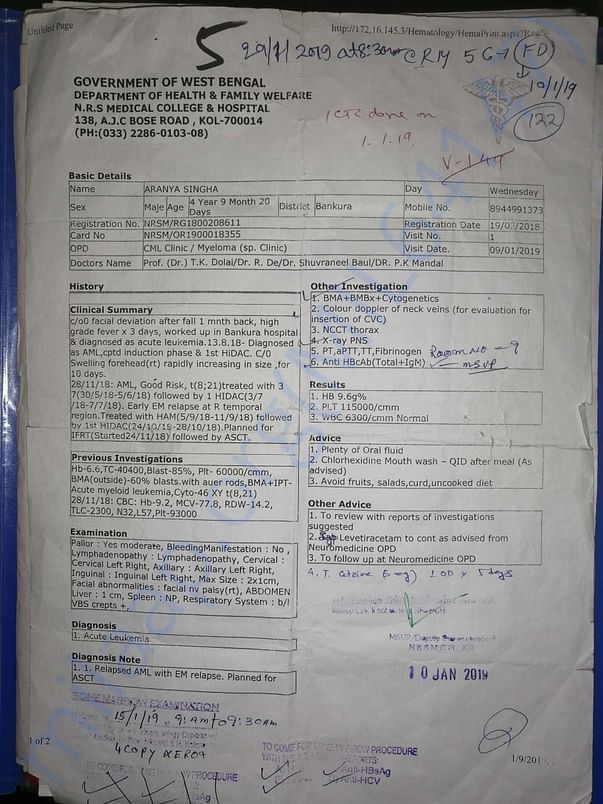 Untitled Page
http://172.16.145.3/Hematology/HemaPrint.aspx?Reg
5
GOVERNMENT OF WEST BENGAL
DEPARTMENT OF HEALTH & FAMILY WELFARE
N.R.S MEDICAL COLLEGE & HOSPITAL
138, A.J.C BOSE ROAD , KOL-700014
(PH:(033) 2286-0103-08)
FD
10/1/19
122
ICTC done on
1.1.19.
Basic Details
Name ARANYA SINGHA Day Wednesday
Sex Male Age 4 Year 9 Month 20 Days District Bankura Mobile No. 8944991373
Registration No. NRSM/RG1800208611 Registration Date 19/03/2018
Card No NRSM/OR1900018355 Visit No. 1
OPD CML Clinic / Myeloma (sp. Clinic) Visit Date. 09/01/2019
Doctors Name Prof. (Dr.) T.K. Dolai/Dr. R. De/Dr. Shuvraneel Baul/DR. P.K Mandal
History
Clinical Summary
c/00 facial deviation after fall 1 mnth back, high
grade fever x 3 days, worked up in Bankura hospital
& diagnosed as acute leukemia.13.8.18- Diagnosed
as AML,cptd induction phase & 1st HiDAC. C/O
Swelling forehead(rt) rapidly increasing in size ,for
10 days.
28/11/18: AML, Good Risk, t(8;21)treated with 3
7(30/5/18-5/6/18) followed by 1 HIDAC(3/7
/18-7/7/18). Early EM relapse at R temporal
region.Treated with HAM(5/9/18-11/9/18) followed
by 1st HIDAC(24/10/18-28/10/18).Planned for
IFRT(Started24/11/18) followed by ASCT.
Previous Investigations
Hb-6.6,TC-40400,Blast-85%, Plt- 60000/cmm,
BMA(outside)-60% blasts.with auer rods,BMA+IPT-
Acute myeloid leukemia,Cyto-46 XY t(8,21)
28/11/18: CBC: Hb-9.2, MCV-77.8, RDW-14.2,
TLC-2300, N32,L57,Plt-93000
Examination
Pallor : Yes moderate, BleedingManifestation : No ,
Lymphadenopathy : Lymphadenopathy, Cervical :
Cervical Left Right, Axillary : Axillary Left Right,
Inguinal : Inguinal Left Right, Max Size : 2x1cm,
Facial abnormalities : facial nv palsy(rt), ABDOMEN
Liver : 1 cm, Spleen : NP, Respiratory System : b/l
VBS crepts +,
Diagnosis
1. Acute Leukemia
Diagnosis Note
1. 1. Relapsed AML with EM relapse. Planned for
ASCT
Other Investigation
1. BMA+BMBx+Cytogenetics
2. Colour doppler of neck veins (for evaluation for
insertion of CVC)
3. NCCT thorax
4. X-ray PNS
5. PT,aPTT,TT,Fibrinogen
6. Anti HBcAb(Total+IgM)
Room NO - 9
MSVP
Results
1. HB 9.6g%
2. PLT 115000/cmm
3. WBC 6300/cmm Normal
Advice
1. Plenty of Oral fluid
2. Chlorhexidine Mouth wash – QID after meal (As
advised)
3. Avoid fruits, salads,curd,uncooked diet
Other Advice
1. To review with reports of investigations
suggested
2. Levetiracetam to cont as advised from
Neuromedicine OPD
3. To follow up at Neuromedicine OPD
10 JAN 2019
BONE MARROW EXAMINATION
15/1/19 9:am to 9:30am
4 COPY XEROX
TO COME FOR BONE MARROW PROCEDURE
Anti-HBsAg
Anti-HCV
1 of 2
1/9/201